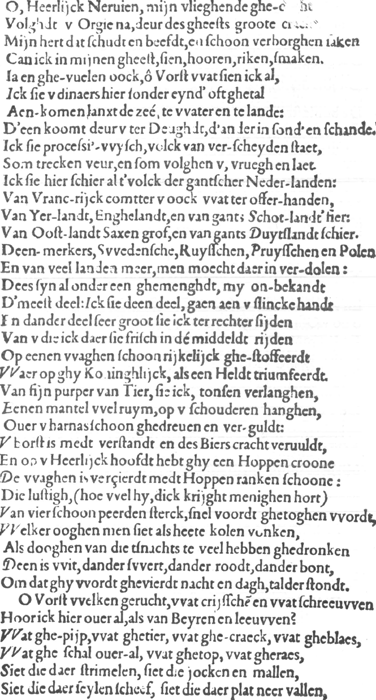 O, Heerlijck Neruien, mijn vlieghende ghe-
Volghdt v Orgiena, deur des gheests groote
Mijn hert dat schudt en beefdt, en schoon verborghen saken
Can ick in mijnen gheest, sien, hooren, riken, smaken.
Ia en ghe-vuelen oock, ô Vorst vvat sien ick al,
Ick sie v dinaers hier sonder eynd' oft ghetal
Aen-komen lanxt de zeé, te vvater en te lande:
D'een koomt deur v ter Deughdt, d'ander in sond' en schande.
Ick sie processi'-vvysch, volck van ver-scheyden staet,
Som trecken veur, en som volghen v, vruegh en laet.
Ick sie hier schier al t'volck der gantscher Neder-landen:
Van Vranc-rijck comtter v oock vvatter offer-handen,
Van Yer-landt, Enghelandt, en van gants Schot-landt' hier:
Van Oost-landt Saxen grof, en van gants Duytslandt schier.
Deen-merkers, Svvedensche, Ruysschen, Pruysschen en Polen
En van veel landen meer, men moecht daer in ver-dolen:
Dees syn al onder een ghemenghdt, my on-bekandt
D'meest deel: Ick sie deen deel, gaen aen v slincke handt
In dander deel seer groot sie ick ter rechter sijden
Van v die ick daer sie frisch in dé middeldt rijden
Op eenen vvaghen schoon rijkelijck ghe-stoffeerdt
VVaer op ghy Koninghlijck, als een Heldt triumfeerdt.
Van sijn purper van Tier, sie ick, tonsen verlanghen,
Eenen mantel vvel ruym, op v schouderen hanghen,
Ouer v harnas schoon ghedreuen en ver-guldt:
V borst is medt verstandt en des Biers cracht veruuldt,
En op v Heerlijck hoofdt hebt ghy een Hoppen croone
De vvaghen is verçierdt medt Hoppen ranken schoone:
Die lustigh, (hoe vvel hy, dick krijght menighen hort)
Van vier schoon peerden sterck, snel voordt ghetoghen vvordt,
VVelker ooghen men siet als heete kolen vonken,
Als dooghen van die tsnachts te veel hebben ghedronken
Deen is vvit, dander svvert, dander roodt, dander bont,
Om dat ghy vvordt ghevierdt nacht en dagh, talder stondt.
O Vorst vvelken gerucht, vvat crijsschē en vvat schreeuvven
Hoor ick hier ouer al, als van Beyren en leeuvven?
VVat ghe-pijp, vvat ghetier, vvat ghe-craeck, vvat gheblaes,
VVat ghe schal ouer-al, vvat ghetop, vvat gheraes,
Siet die daer strimelen, siet die jocken en mallen,
Siet die daer seylen scheef, siet die daer plat neer vallen,